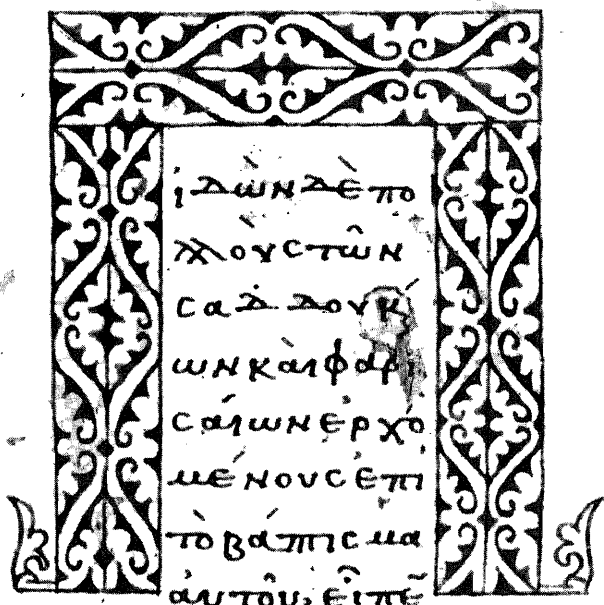 ἰδὼν δὲ πο
λλοὺς τῶν
σαδδουκ
ων καὶ φαρι
σαίων ἐρχο
μένους ἐπὶ
τὸ βάπτισμα
αὐτοῦ, εἶπε